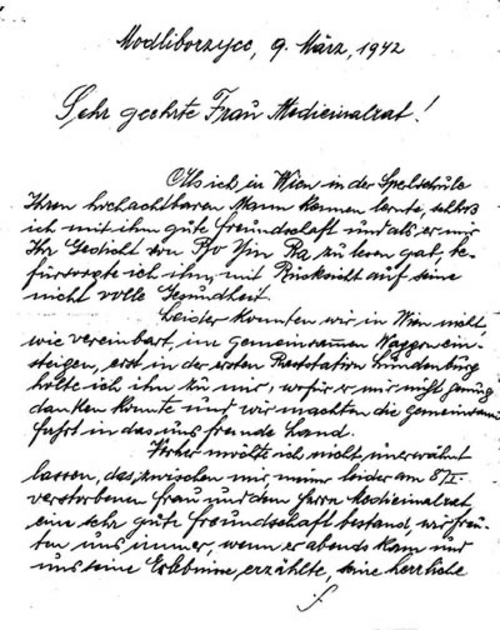 Modliborzyce, 9. März, 1942
Sehr geehrte Frau Medicinalrat!
Als ich in Wien in der Sperlschule
Ihren hochachtbaren Mann kennen lernte, schloß
ich mit ihm gute Freundschaft und als er mir
Ihr Gedicht von Bo Yin Ra zu lesen gab, be-
fürsorgte ich ihn, mit Rücksicht auf seine
nicht volle Gesundheit.
Leider konnten wir in Wien nicht,
wie vereinbart, im gemeinsamen Waggon ein-
steigen, erst in der ersten Raststation Lundenburg
holte ich ihn zu mir, wofür er mir nicht genug
danken konnte und wir machten die gemeinsame
Fahrt in das uns fremde Land.
Vorher möchte ich nicht unerwähnt
lassen, das, zwischen mir, meiner leider am 8/I.
verstorbenen Frau und dem Herrn Medicinalrat,
eine sehr gute Freundschaft bestand, wir freu-
ten uns immer, wenn er abends kam und
uns seine Erlebnisse, erzählte, seine herrliche